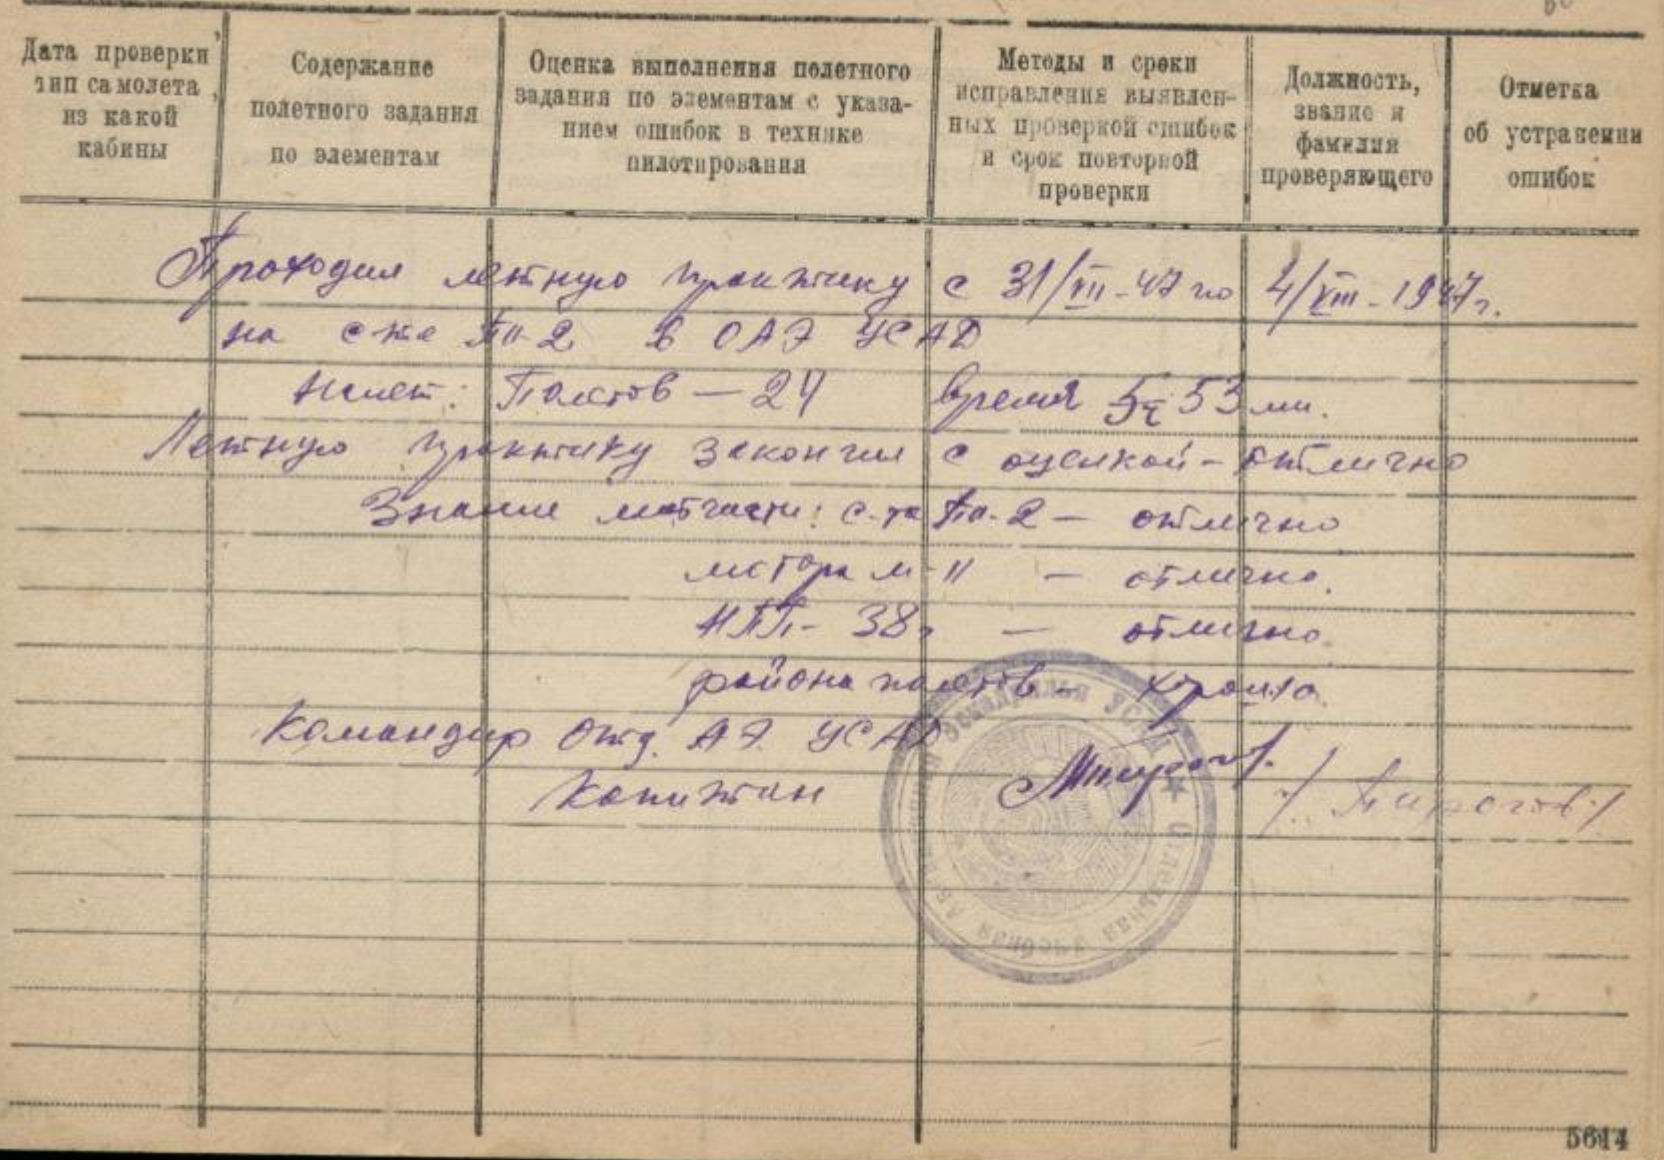 Дата проверки, тип самолета, из какой кабины
Содержание полетного задания по элементам
Оценка выполнения полетного задания по элементам с указанием ошибок в технике пилотирования
Методы и сроки исправления выявленных проверкой ошибок и срок повторной проверки
Должность, звание и фамилия проверяющего
Отметка об устранении ошибок
Проходил летную практику с 31/VII-47 по 4/VIII-1947г.
на с-те По-2 в ОАЭ УСАД
Налет: Полетов — 24 Время 5ч 53 мин.
Летную практику закончил с оценкой - отлично
Знание матчасти: с-та По-2 — отлично
мотора М-11 — отлично.
НПП-38г — отлично.
района полетов — хорошо.
Командир Отд. АЭ УСАД
Капитан /Пирогов/
Отдельная Учебная Авиационная Эскадрилья УСАД
5614